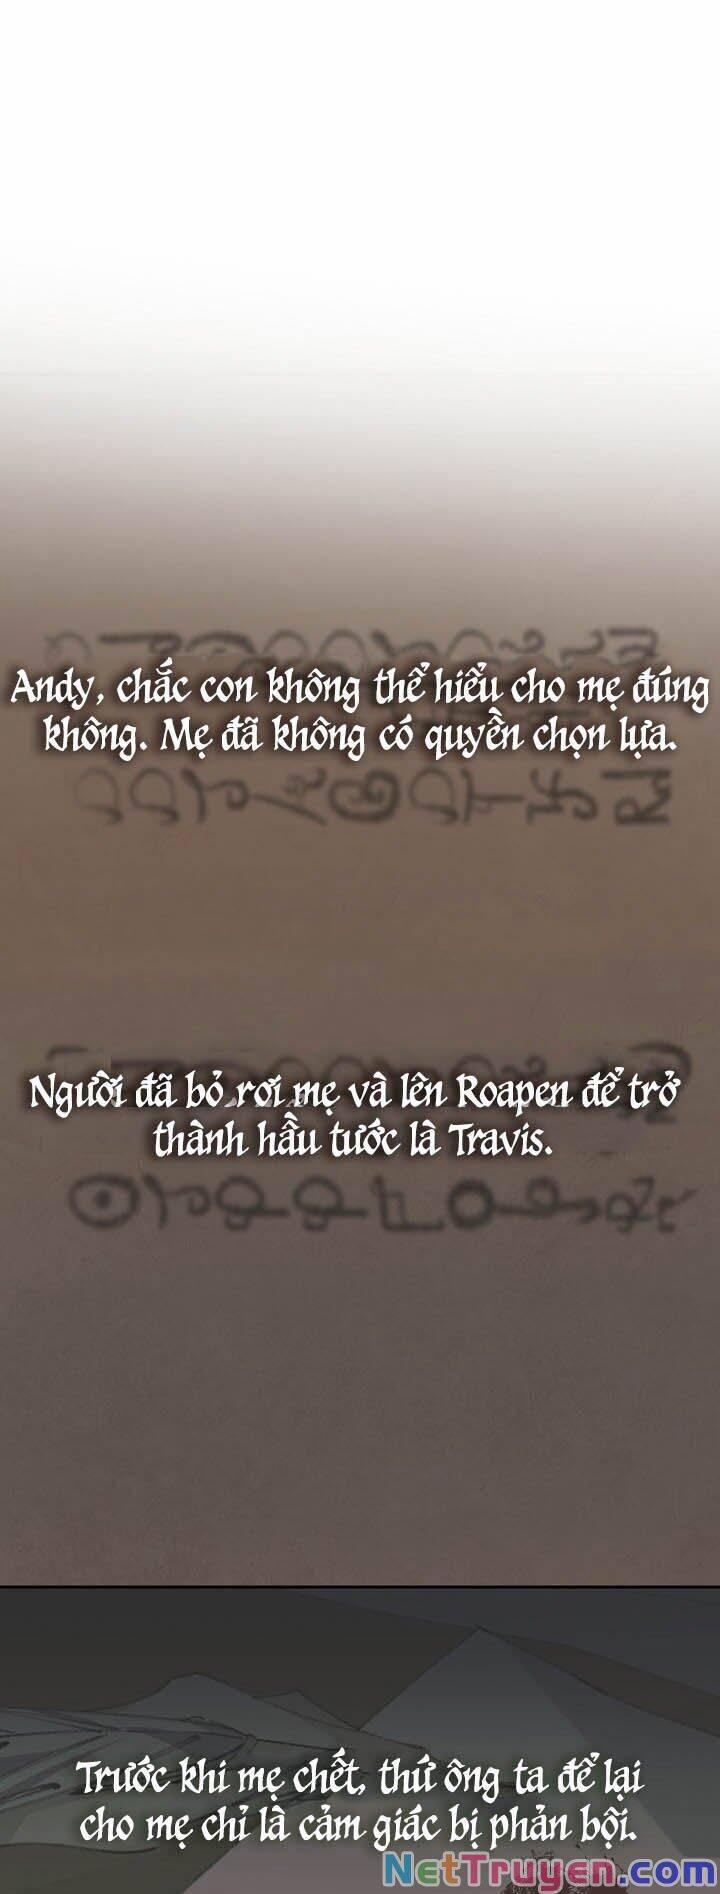 Andy, chắc con không thể hiểu cho mẹ đúng
không. Mẹ đã không có quyền chọn lựa.
Người đã bỏ rơi mẹ và lên Roapen để trở
thành hầu tước là Travis.
Trước khi mẹ chết, thứ ông ta để lại
cho mẹ chỉ là cảm giác bị phản bội.
NetTruyen.com